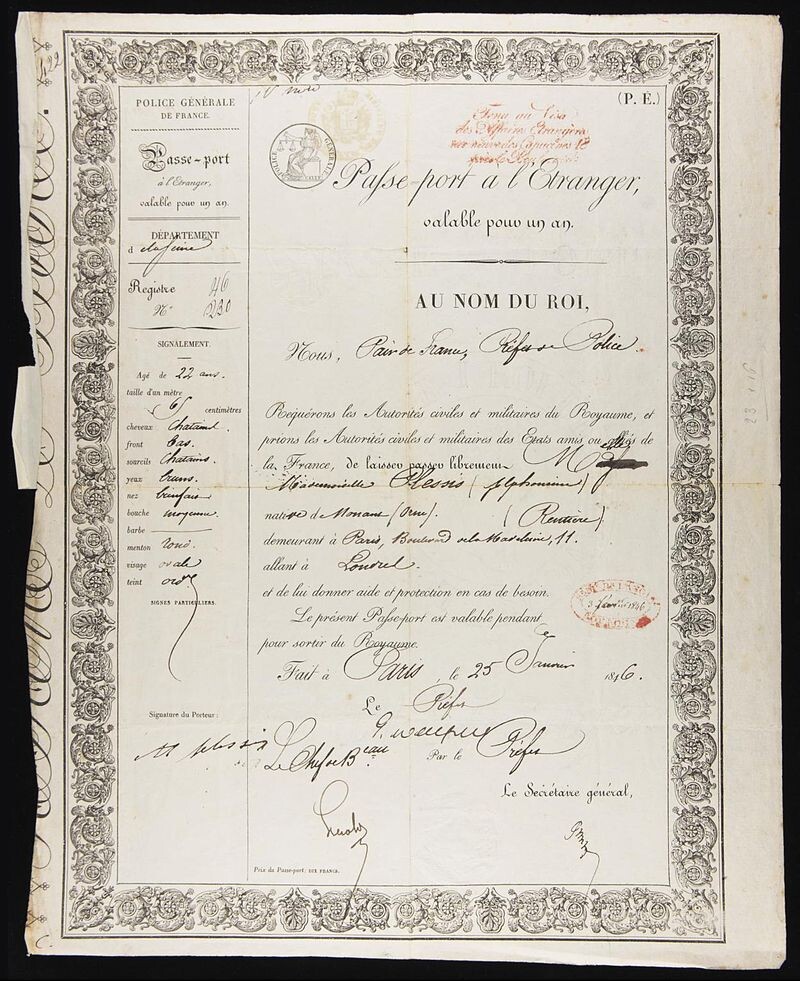 POLICE GÉNÉRALE
DE FRANCE.
Passe-port
à l'Etranger,
valable pour un an.
DÉPARTEMENT
de la Seine
Registre 46
N° 230
SIGNALEMENT.
Agé de 22 ans.
taille d'un mètre
65 centimètres
cheveux Chatains
front bas.
sourcils Chatains.
yeux bruns.
nez
bouche moyenne
barbe
menton rond.
visage ovale
teint ord.
SIGNES PARTICULIERS.
Signature du Porteur:
M plessis
(P. E.)
des Affaires Etrangères
rue neuve des Capucines
POLICE GÉNÉRALE
Passe-port à l'Etranger,
valable pour un an.
AU NOM DU ROI,
Nous, Pair de France, Préfet de Police
Requérons les Autorités civiles et militaires du Royaume, et
prions les Autorités civiles et militaires des Etats amis ou alliés de
la France, de laisser passer librement M
Mademoiselle Plessis (Alphonsine)
native de Nonant (Orne). (Rentière)
demeurant à Paris, Boulevard de la Madeleine, 11.
allant à Londres.
et de lui donner aide et protection en cas de besoin.
Le présent Passe-port est valable pendant
pour sortir du Royaume.
Fait à Paris, le 25 Janvier 1846.
Le Préfet
Le Chef de Beau
Par le Préfet
Le Secrétaire général,
Prix du Passe-port: DIX FRANCS.